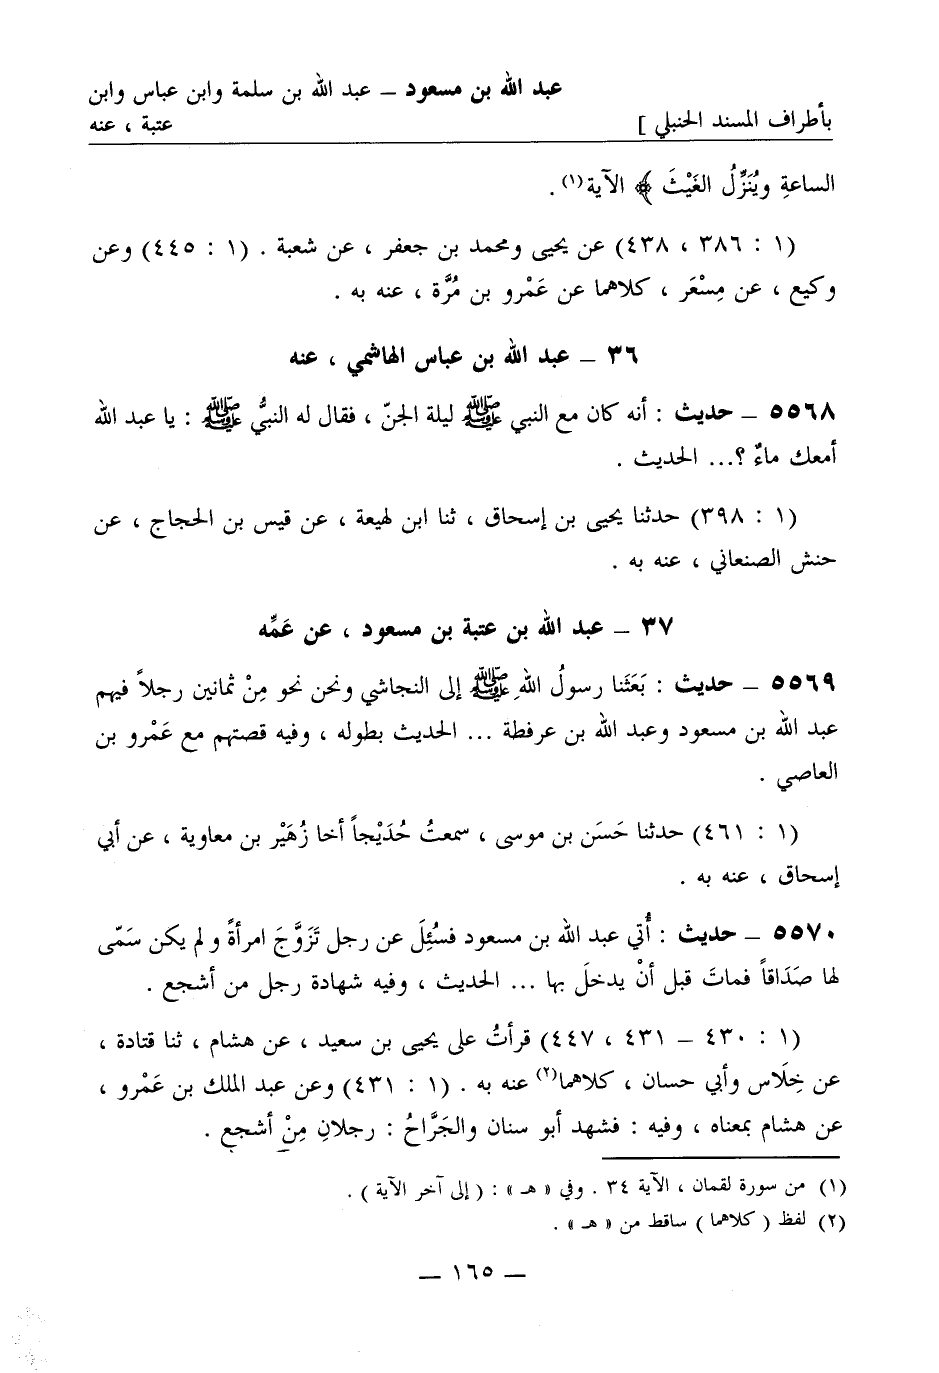 عبد الله بن مسعود ــ عبد الله بن سلمة وابن عباس وابن
بأطراف المسند الحنبلي ]
عتبة ، عنه
الساعةِ ويُنَزِّلُ الغَيْثَ ﴾ الآية(١) .
(١ : ٣٨٦ ، ٤٣٨) عن يحيى ومحمد بن جعفر ، عن شعبة . (١ : ٤٤٥) وعن
وكيع ، عن مِسْعَر ، كلاهما عن عَمْرو بن مُرَّة ، عنه به .
٣٦ ــ عبد الله بن عباس الهاشمي ، عنه
٥٥٦٨ ــ حديث : أنه كان مع النبي ﷺ ليلة الجنّ ، فقال له النبيُّ ﷺ : يا عبد الله
أمعك ماءٌ ؟... الحديث .
(١ : ٣٩٨) حدثنا يحيى بن إسحاق ، ثنا ابن لهيعة ، عن قيس بن الحجاج ، عن
حنش الصنعاني ، عنه به .
٣٧ ــ عبد الله بن عتبة بن مسعود ، عن عَمِّه
٥٥٦٩ ــ حديث : بَعَثَنا رسولُ اللهِ ﷺ إلى النجاشي ونحن نحو مِنْ ثمانين رجلاً فيهم
عبد الله بن مسعود وعبد الله بن عرفطة ... الحديث بطوله ، وفيه قصتهم مع عَمْرو بن
العاصي .
(١ : ٤٦١) حدثنا حَسَن بن موسى ، سمعتُ حُدَيْجاً أخا زُهَيْر بن معاوية ، عن أبي
إسحاق ، عنه به .
٥٥٧٠ ــ حديث : أُتي عبد الله بن مسعود فسُئِلَ عن رجل تَزَوَّجَ امرأةً ولم يكن سَمّى
لها صَدَاقاً فماتَ قبل أنْ يدخلَ بها ... الحديث ، وفيه شهادة رجل من أشجع .
(١ : ٤٣٠ ــ ٤٣١ ، ٤٤٧) قرأتُ على يحيى بن سعيد ، عن هشام ، ثنا قتادة ،
عن خِلَاس وأبي حسان ، كلاهما(٢) عنه به . (١ : ٤٣١) وعن عبد الملك بن عَمْرو ،
عن هشام بمعناه ، وفيه : فشهد أبو سنان والجَرَّاحُ : رجلانِ مِنْ أشجع .
(١) من سورة لقمان ، الآية ٣٤ . وفي « هـ » : ( إلى آخر الآية ) .
(٢) لفظ ( كلاهما ) ساقط من « هـ » .
ــ ١٦٥ ــ